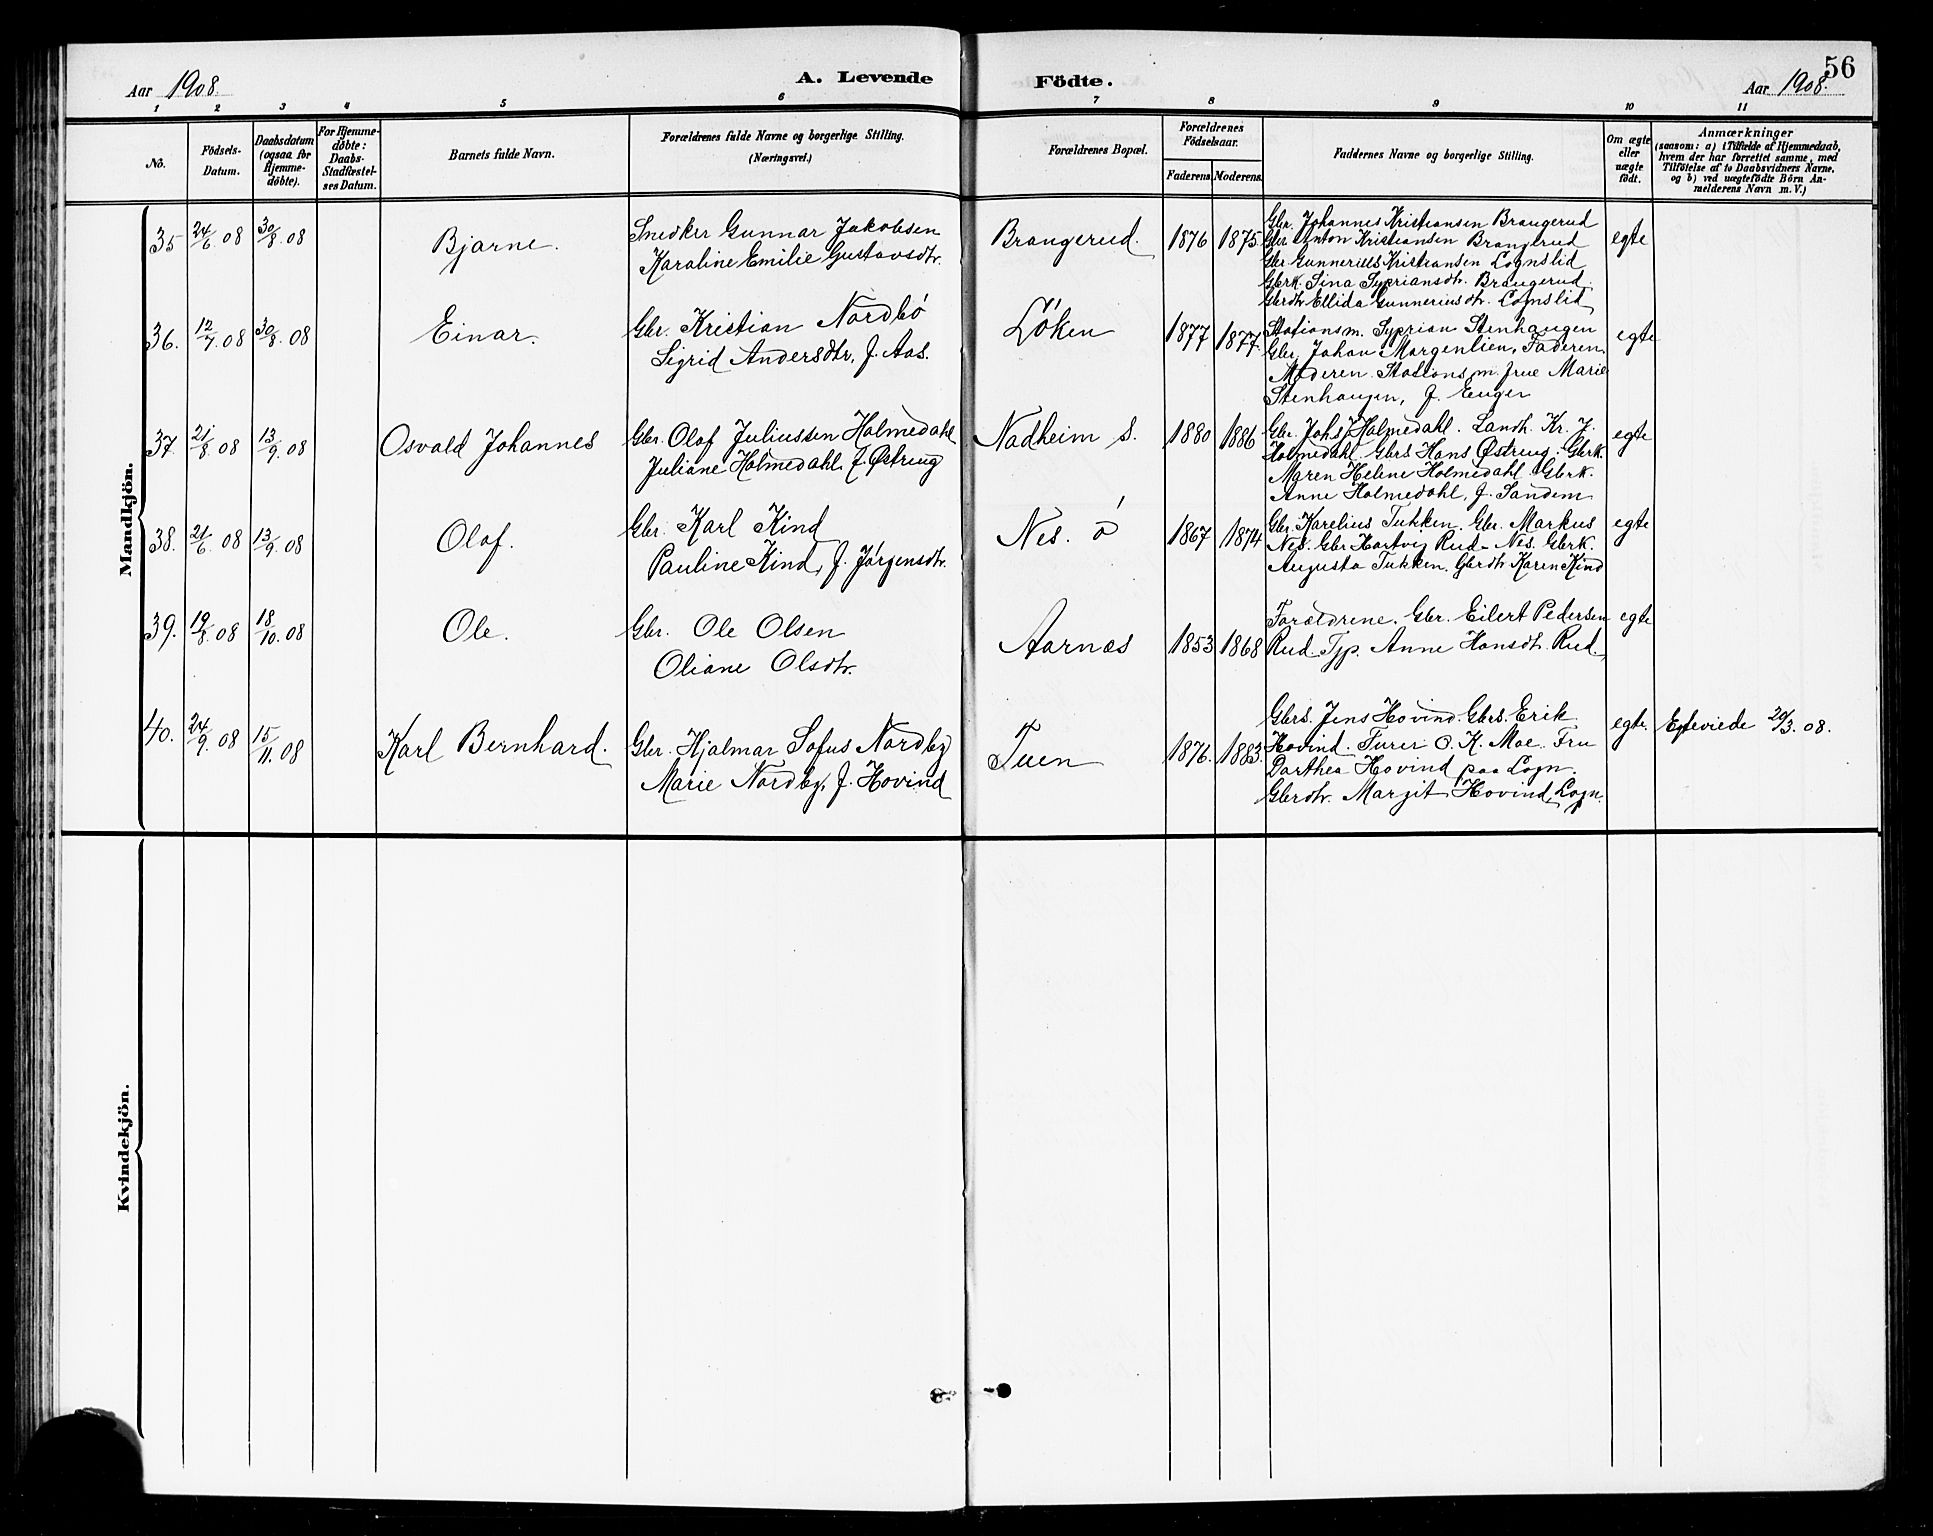 56
Aar 1908. A. Levende Födte. Aar 1908.
1 2 3 4 5 6 7 8 9 10 11
No. Födsels-Datum. Daabsdatum (ogsaa for Hjemme-döbte). For Hjemme-döbte: Daabs-Stadfæstel-ses Datum. Barnets fulde Navn. Forældrenes fulde Navne og borgerlige Stilling. (Næringsvei.) Forældrenes Bopæl. Forældrenes Födselsaar. Faderens Moderens. Faddernes Navne og borgerlige Stilling. Om ægte eller uægte födt. Anmærkninger (saasom: a) i Tilfælde af Hjemmedaab, hvem der har forrettet samme, med Tilföielse af to Daabsvidners Navne. og b) ved uægtefödte Börn An-melderens Navn m. V.)
Mandkjön.
35 24/6 08 30/8 08 Bjarne. Snedker Gunnar Jakobsen Brangerud. 1876 1875 Gbr. Johannes Kristiansen Brangerud egte
Karoline Emilie Gustavsdtr. Gbr Anton Kristiansen Brangerud
Gbr Gunnerius Kristiansen Lognslid
Gbrk. Sina Sypriansdtr. Brangerud.
Gbrdtr Ellida Gunneriusdtr. Lognslid
36. 12/7 08 30/8 08 Einar. Gbr. Kristian Nordbö Löken 1877 1877. Stationsm. Syprian Stenhaugen egte
Sigrid Andersdtr, f. Aas. Gbr. Johan Morgenlien, Faderen.
Moderen. Stationsm. frue Marie
Stenhaugen, f. Enger
37. 21/8 08 13/9 08 Osvald Johannes Gbr. Olaf Juliussen Holmedahl Nadheim s. 1880 1886 Gbr. Johs J Holmedahl. Landh. Kr. J. egte
Juliane Holmedahl f. Østreng Holmedahl. Gbrs Hans Østreng. Gbrk.
Maren Helene Holmedahl Gbrk.
Anne Holmedahl, f. Sandem
38. 21/6 08 13/9 08 Olaf. Gbr. Karl Kind Nes. ö 1867 1874 Gbr. Karelius Tukken. Gbr. Markus egte
Pauline Kind, f. Jörgensdtr. Nes. Gbr Hartvig Rud. Nes. Gbrk.
Augusta Tukken. Gbrdtr Karen Kind
39. 19/8 08 18/10 08 Ole. Gbr. Ole Olsen Aarnæs 1853 1868 Forældrene. Gbr. Eilert Pedersen egte
Oliane Olsdtr. Rud Tjp. Anne Hansdtr. Rud.
40. 24/9 08 15/11 08 Karl Bernhard. Gbr. Hjalmar Sofus Nordby Tuen 1876. 1883. Gbrs. Jens Hovind. Gbrs. Erik egte. Egteviede 20/3 08.
Marie Nordby, f. Hovind Hovind. Turer O. K. Moe. Fru
Dorthea Hovind paa Logn.
Gbrdtr. Margit Hovind, Logn.
Kvindekjön.